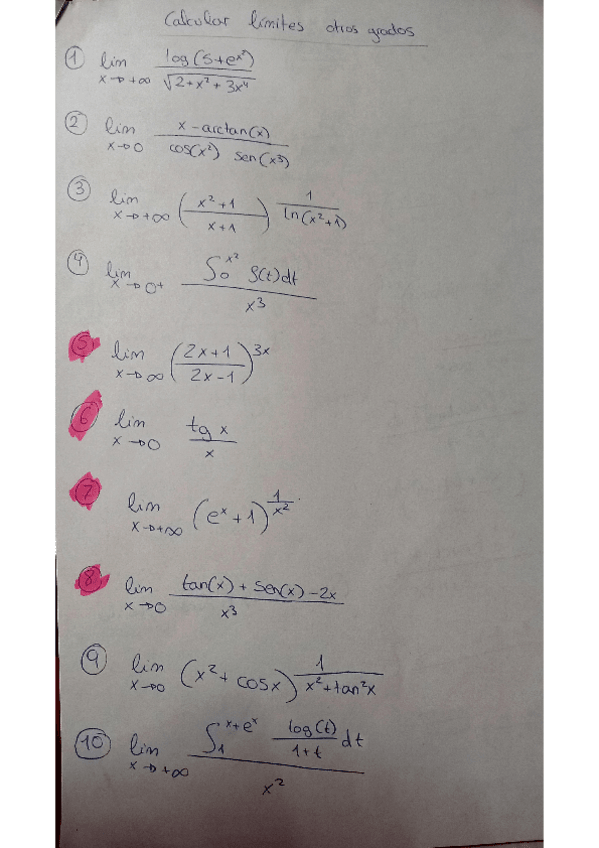 Calcular límites otros grados
① lim x→+∞ log(5+e^x²) / √(2+x²+3x⁴)
② lim x→0 x-arctan(x) / cos(x²) sen(x³)
③ lim x→+∞ (x²+1 / x+1)^(1 / ln(x²+1))
④ lim x→0+ ∫₀^x² f(t)dt / x³
⑤ lim x→∞ (2x+1 / 2x-1)^3x
⑥ lim x→0 tg x / x
⑦ lim x→+∞ (e^x+1)^(1/x²)
⑧ lim x→0 tan(x) + sen(x) - 2x / x³
⑨ lim x→0 (x²+cosx)^(1 / x²+tan²x)
⑩ lim x→+∞ ∫₁^(x+e^x) log(t) / 1+t dt / x²